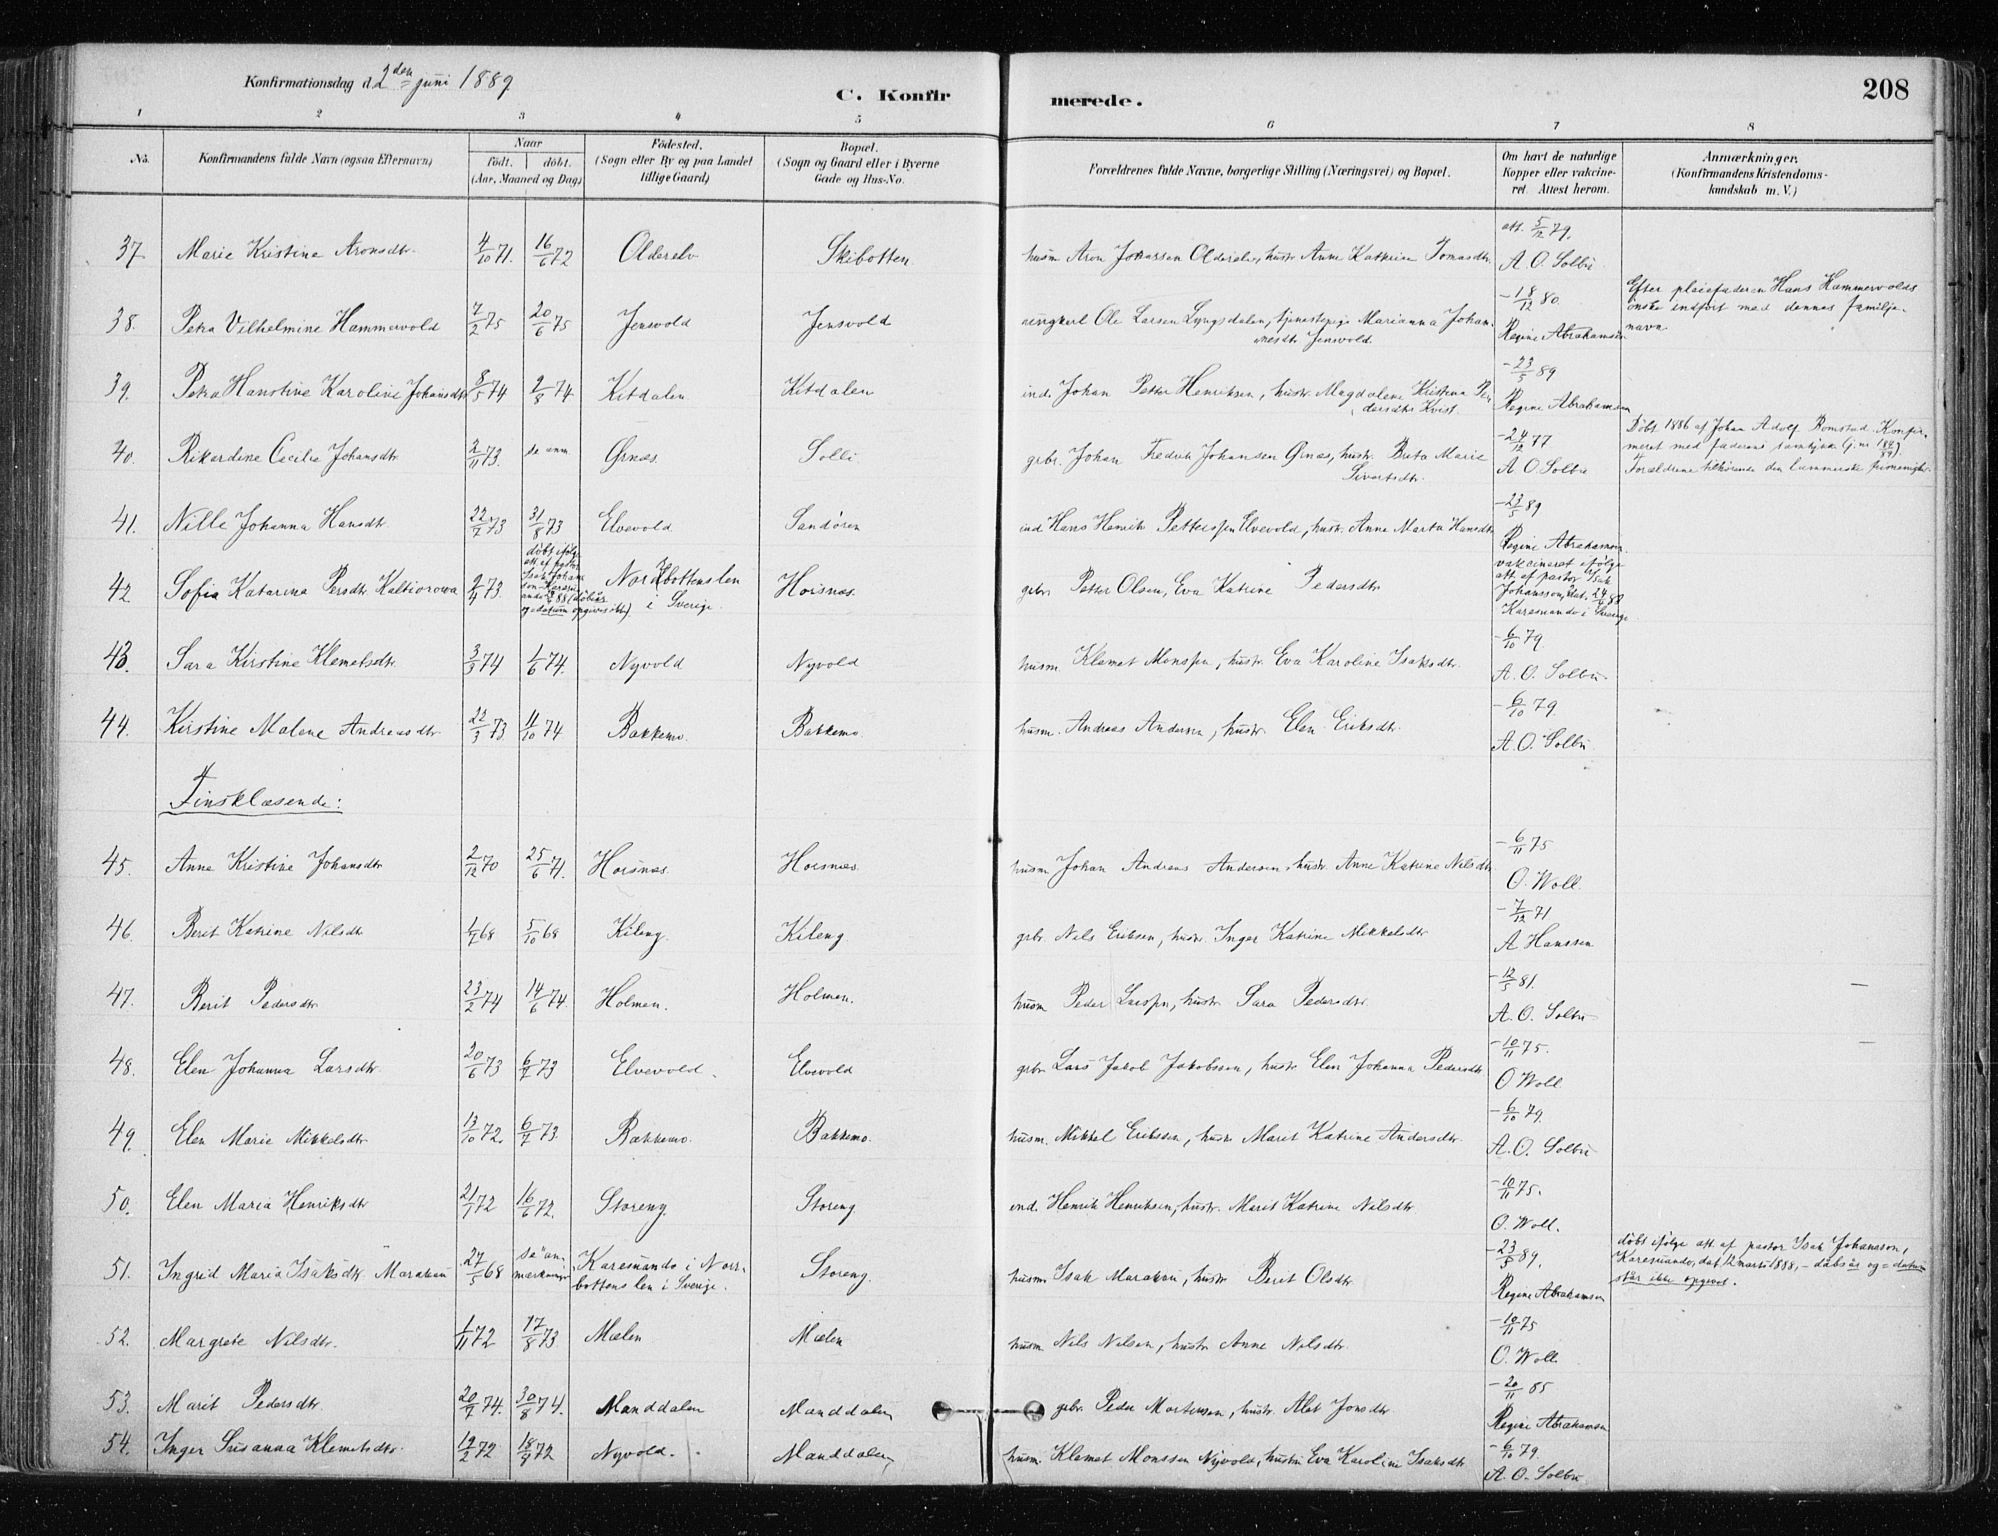 Konfirmationsdag d. 2den juni 1889
C. Konfir
merede.
208
1 2 3 4 5 6 7 8
No. Konfirmandens fulde Navn (ogsaa Efternavn) Naar født. døbt. (Aar, Maaned og Dag) Fødested. (Sogn eller By og paa Landet tillige Gaard) Bopæl. (Sogn og Gaard eller i Byerne Gade og Hus-No. Forældrenes fulde Navne, borgerlige Stilling (Næringsvei) og Bopæl. Om havt de naturlige Kopper eller vakcineret. Attest herom. Anmærkninger. (Konfirmandens Kristendomskundskab m. V.)
37. Marie Kristine Aronsdtr. 4/10 71. 16/6 72 Olderelv Skibotten husm Aron Johansen Olderelv, hustr. Anne Kathrine Tomasdtr. att. 5/12 79. A. O. Solbu.
38. Petra Vilhelmine Hammervold 7/2 75 20/6 75 Jensvold Jensvold ungkarl Ole Larsen Lyngsdalen, tjenestepige Marianna Johannesdtr. Jensvold. - 18/12 80. Regine Abrahamsen Efter pleiefaderen Hans Hammervolds ønske indført med dennes familjenavn
39. Petra Hanstine Karoline Johansdtr 8/5 74 2/8 74 Kitdalen Kitdalen ind. Johan Petter Henriksen, hustr. Magdalene Kristina Pedersdtr. Kvist. - 23/5 89 Regine Abrahamsen
40. Rikardine Cecilie Johansdtr. 2/11 73. se anm. Ørnæs. Solli. gbr. Johan Fredrik Johansen Ørnæs, hustr. Brita Marie Sivertsdtr. - 24/12 77 A. O. Solbu Døbt 1886 af Johan Adolf Bomstad. Konfirmeret med faderens samtykke (j. nr. 184/89). Forældrene tilhørende den lammerske frimenighed.
41. Nille Johanna Hansdtr. 22/7 73 31/8 73 Elvevold Sandøren ind Hans Henrik Pettersen Elvevold, hustr. Anne Marta Hansdtr. - 23/5 89 Regine Abrahamsen.
42. Sofia Katarina Persdtr Keltiorova 2/4 73. døbt ifølge att. af pastor Isak Johansson Karesuando (døbsår og datum opgives ikke). Nordbottenslen i Sverige. Horsnæs. gbr. Petter Olsen, Eva Katrine Pedersdtr. vakcineret ifølge att. af pastor Isak Johansson, dat. 24/6 88 Karesuando i Sverige
43. Sara Kirstine Klemetsdtr. 3/3 74 1/6 74. Nyvold Nyvold husm. Klemet Monsen, hustr. Eva Karoline Isaksdtr. - 6/10 79. A. O. Solbu.
44. Kirstine Malene Andreasdtr. 22/3 73. 11/10 74 Bakkemo. Bakkemo husm. Andreas Andersen, hustr. Elen Eriksdtr. - 6/10 79. A. O. Solbu.
Finsklæsende:
45. Anne Kristine Johansdtr 2/12 70 25/6 71. Horsnæs. Horsnæs. husm Johan Andreas Andersen, hustr. Anne Katrine Nilsdtr. - 6/11 75 O. Woll.
46. Berit Katrine Nilsdtr 1/7 68 5/10 68 Kileng. Kileng gbr. Nils Eriksen, hustr. Inger Katrine Mikkelsdtr. - 7/12 71 A Hanssen
47. Berit Pedersdtr. 23/2 74 14/6 74. Holmen. Holmen. husm Peder Larsen, hustr. Sara Pedersdtr. - 12/5 81. A. O. Solbu
48. Elen Johanna Larsdtr. 20/6 73 6/7 73 Elvevold. Elvevold gbr. Lars Jakob Jakobsen, hustr. Elen Johanna Pedersdtr - 10/11 75. O Woll
49. Elen Marie Mikkelsdtr 13/10 72. 6/7 73. Bakkemo. Bakkemo. husm. Mikkel Eriksen, hustr. Marit Katrine Andersdtr. - 6/10 79. A. O. Solbu
50. Elen Maria Henriksdtr 21/1 72 16/6 72. Storeng Storeng ind. Henrik Henriksen, hustr. Marit Katrine Nilsdtr. - 10/11 75. O. Woll.
51. Ingrid Maria Isaksdtr. Marakau 27/5 68 se anmærkninger Karesuando i Norrbottens len i Sverige. Storeng. husm. Isak Marakau, hustr. Berit Olsdtr. - 23/5 89. Regine Abrahamsen døbt ifølge att. af pastor Isak Johansson, Karesuando, dat. 12 marts 1888, - døbsår og = datum står ikke opgivet.
52. Margrete Nilsdtr. 1/11 72 17/8 73 Mælen Mælen husm. Nils Nilsen, hustr. Anne Nilsdtr. - 10/11 75 O. Woll.
53. Marit Pedersdtr. 20/7 74. 30/8 74. Manddalen Manddalen gbr. Peder Mortensen, hustr. Alet Jonsdtr. - 20/11 85 Regine Abrahamsen
54. Inger Susanna Klemetsdtr. 12/2 72 18/9 72 Nyvold. Manddalen husm. Klemet Monssen Nyvold, hustru Eva Karoline Isaksdtr. - 6/10 79. A. O. Solbu